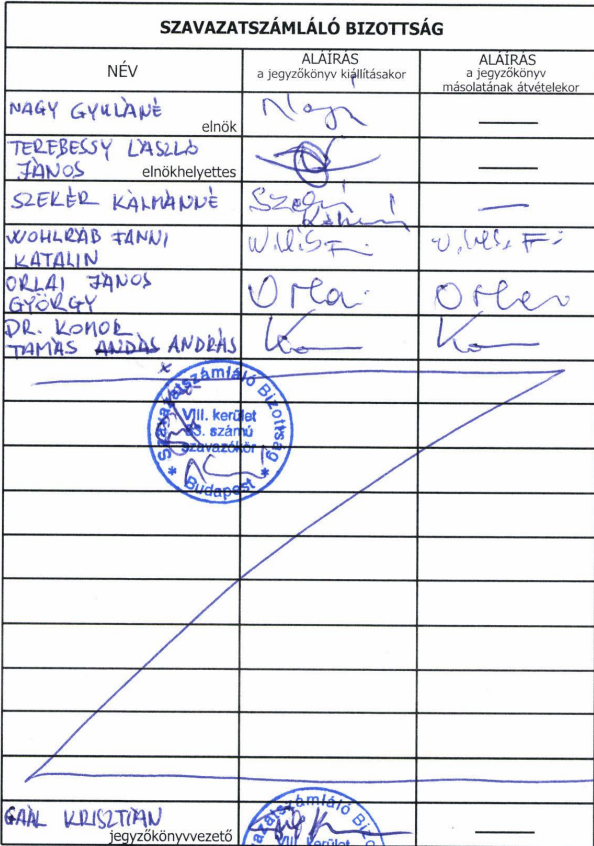 SZAVAZATSZÁMLÁLÓ BIZOTTSÁG
NÉV
ALÁÍRÁS
a jegyzőkönyv kiállításakor
ALÁÍRÁS
a jegyzőkönyv
másolatának átvételekor
NAGY GYULÁNÉ
elnök
TEREBESSY LÁSZLÓ
JÁNOS elnökhelyettes
SZEKÉR KÁLMÁNNÉ
WOHLRAB FANNI
KATALIN
ORLAI JÁNOS
GYÖRGY
DR. KOMOR
TAMÁS ANDAS ANDRÁS
Szavazatszámláló Bizottság
VIII. kerület
számú
szavazókör
* Budapest *
GAÁL KRISZTIÁN
jegyzőkönyvvezető
VIII. kerület